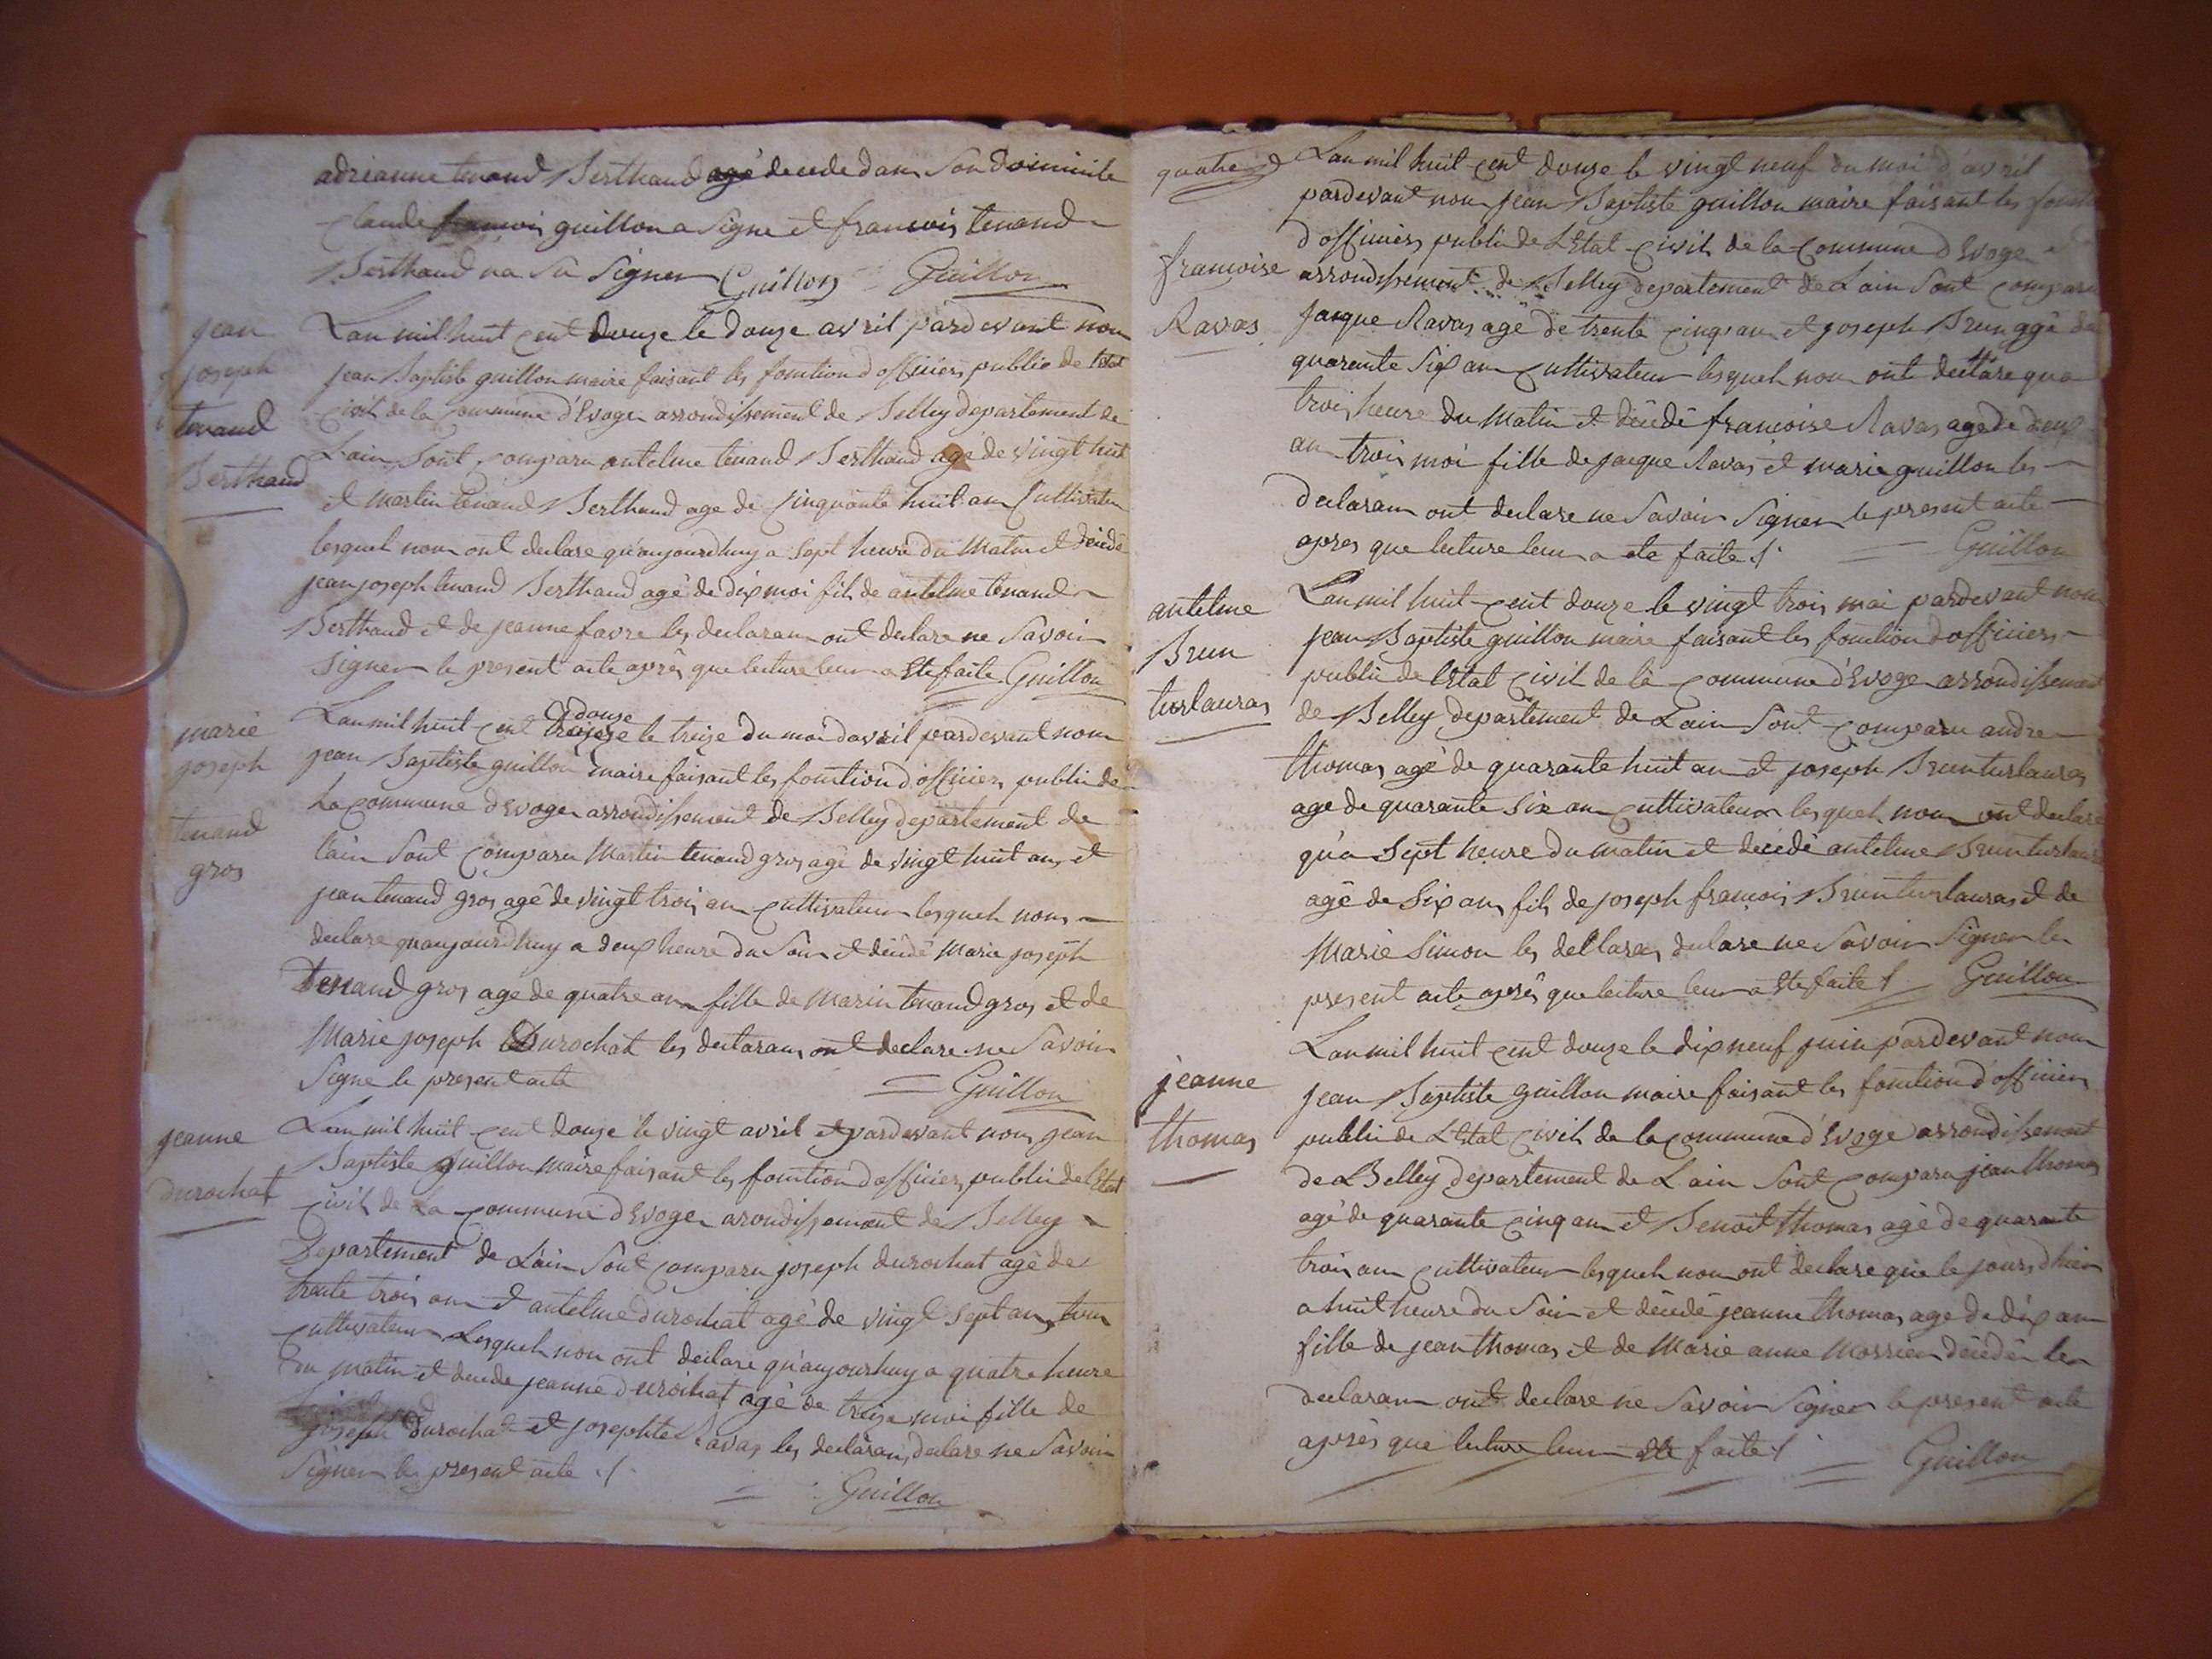 adrianne tenand Berthaud agé decede dans Son Domicile
Claude francois guillon a Signe et francois tenand
Berthaud na Su Signer Guillon Guillon
jean
joseph
tenand
Berthaud
Lan mil huit cent douze le douze avril pardevant nou
jean Baptiste guillon maire faisant les fonction d officiers public de letat
civil de la Commune d'Evoge arrondissement de Belley departement de
Lain Sont comparu antelme tenand Berthaud agé de vingt huit
et martin tenand Berthaud age de cinquante huit an Cultivateur
lesquel nou ont declare qu'aujourdhuy a Sept heure du Matin et décédé
jean joseph tenand Berthaud agé de dix moi fils de antelme tenand
Berthaud et de jeanne favre les declaran ont declare ne Savoir
Signer le present acte après que lecture leur a Ete faite Guillon
marie
joseph
tenand
gros
douze
Lan mil huit cent treize le treize du moi davril pardevant nou
jean Baptiste guillon maire faisant les fonction d'officiers public de
La commune d'Evoge arrondissement de Belley departement de
lain Sont Comparu Martin tenand gros agé de vingt huit ans et
jean tenand gros agé de vingt trois an cultivateur lesquel nous
declare quaujourdhuy a deux heure du Soir et décédé Marie joseph
Tenand gros age de quatre an fille de Marin tenand gros et de
Marie joseph Durochat les declaran ont declare ne Savoir
Signe le present acte Guillon
jeanne
durochat
Lan mil huit cent douze le vingt avril et pardevant nous jean
Baptiste guillon maire faisant les fonction d officiers public de lEtat
Civil de La commune d Evoge arondissement de Belley
Departement de Lain Sont Comparu joseph durochat agé de
trente trois an et antelme durochat agé de vingt Sept an tous
cultivateur Lesquel nou ont declare qu'aujourhuy a quatre heure
du matin et decede jeanne durochat agé de treize moi fille de
joseph durochat et josephte Ravas les declaran declare ne Savoir
Signer le present acte ./. Guillon
quatre
francoise
Ravas
Lan mil huit cent douze le vingt neuf du moi d'avril
pardevant nou jean Baptiste guillon maire faisant les fonct
d'officiers public de L'Etat civil de la Commune d'Evoge
arrondissement de Belley departement de Lain Sont compara
jacque Ravas agé de trente cinq an et joseph Brun ggé de
quarente Six an cultivateur lesquel nou ont declare qua
trois heure du Matin et décédé francoise Ravas age de deux
an trois moi fille de jacque Ravas et marie guillon les
declaran ont declare ne Savoir Signer le present acte
apres que lecture leur a ete faite ./. Guillon
antelme
Brun
turlauras
Lan mil huit cent douze le vingt trois mai pardevant nou
jean Baptiste guillon maire faisant les fonction d officiers
public de lEtat civil de la commune d'Evoge arrondissement
de Belley departement de Lain Sont comparu andre
thomas agé de quarante huit an et joseph Brun turlauras
age de quarante Six an cultivateur lesquel nou ont declare
qu'a Sept heure du matin et décédé antelme Brun turlaura
agé de Six an fils de joseph francois Brun turlauras et de
Marie Simon les dellaran declare ne Savoir Signer le
present acte après que lecture leur a Ete faite ./. Guillon
jeanne
thomas
Lan mil huit cent douze le dix neuf juin pardevant nou
jean Baptiste guillon maire faisant les fonction d'officiers
public de LEtat Civil de la commune d'Evoge arrondissement
de Belley departement de Lain Sont Compara jean thomas
agé de quarante cinq an et Benoit thomas agé de quarante
trois an cultivateur lesquel nou ont declare que le jours dhier
a huit heure du Soir et décédé jeanne thomas age de dix an
fille de jean thomas et de Marie anne décédé les
declaran ont declare ne Savoir Signer le present acte
après que lecture leur ete faite ./. Guillon